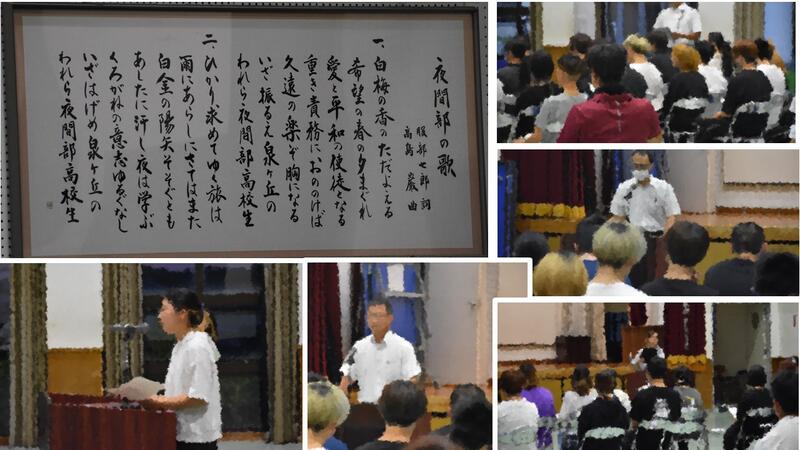 夜間部の歌
服部七郎 詞
高島 巌 曲
一、白梅の香のただよえる
希望の春の夕まぐれ
愛と平和の使徒となる
重き責務におののけば
久遠の楽ぞ胸になる
いざ振るえ泉ヶ丘の
われら夜間部高校生
二、ひかり求めてゆく旅は
雨にあらしにさてはまた
白金の陽矢そそぐとも
あしたに汗し夜は学ぶ
くろがねの意志ゆるぐなし
いざはげめ泉ヶ丘の
われら夜間部高校生